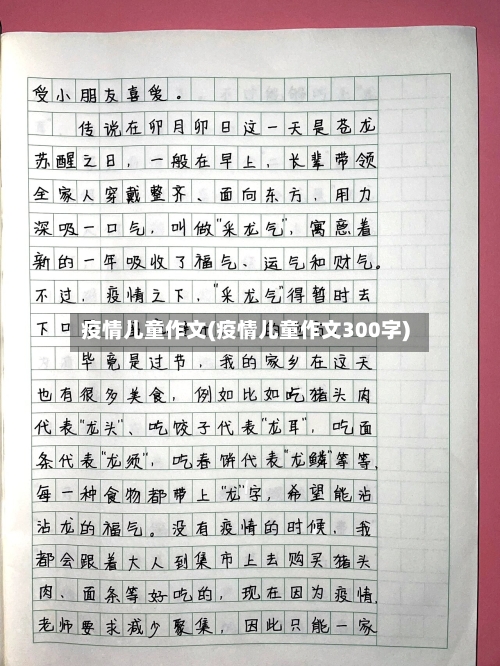 受小朋友喜爱。
传说在卯月卯日这一天是苍龙
苏醒之日，一般在早上，长辈带领
全家人穿戴整齐、面向东方，用力
深吸一口气，叫做"采龙气"，寓意着
新的一年吸收了福气、运气和财气。
不过，疫情之下，"采龙气"得暂时去
下口
疫情儿童作文(疫情儿童作文300字)
毕竟是过节，我的家乡在这天
也有很多美食，例如比如吃猪头肉
代表"龙头"、吃饺子代表"龙耳"，吃面
条代表"龙须"，吃春饼代表"龙鳞"等等，
每一种食物都带上"龙"字，希望能沾
沾龙的福气。没有疫情的时候，我
都会跟着大人到集市上去购买猪头
肉、面条等好吃的，现在因为疫情，
老师要求减少聚集，因此只能一家